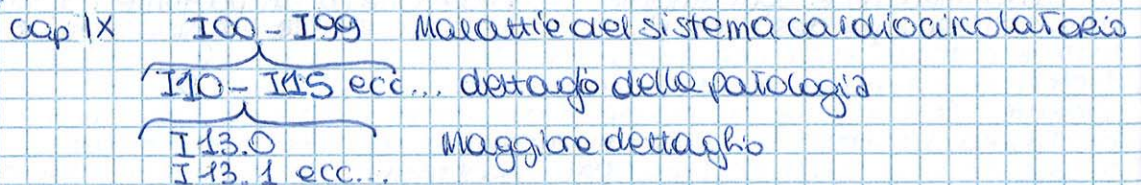 cap IX I00 - I99 Malattie del sistema cardiocircolatorio
I10 - I15 ecc... dettaglio della patologia
I13.0 Maggiore dettaglio
I13.1 ecc...